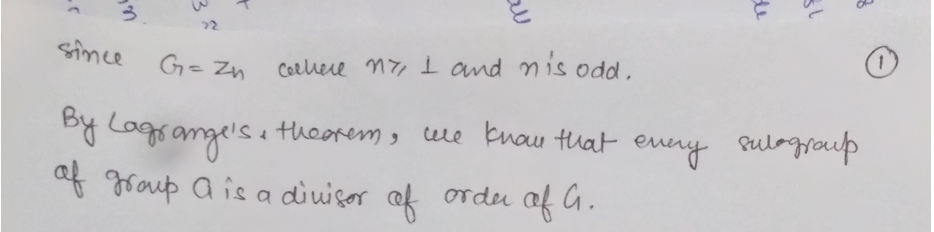 since G = Zn where n ≥ 1 and n is odd. ①
By Lagrange's theorem, we know that every subgroup
of group G is a divisor of order of G.